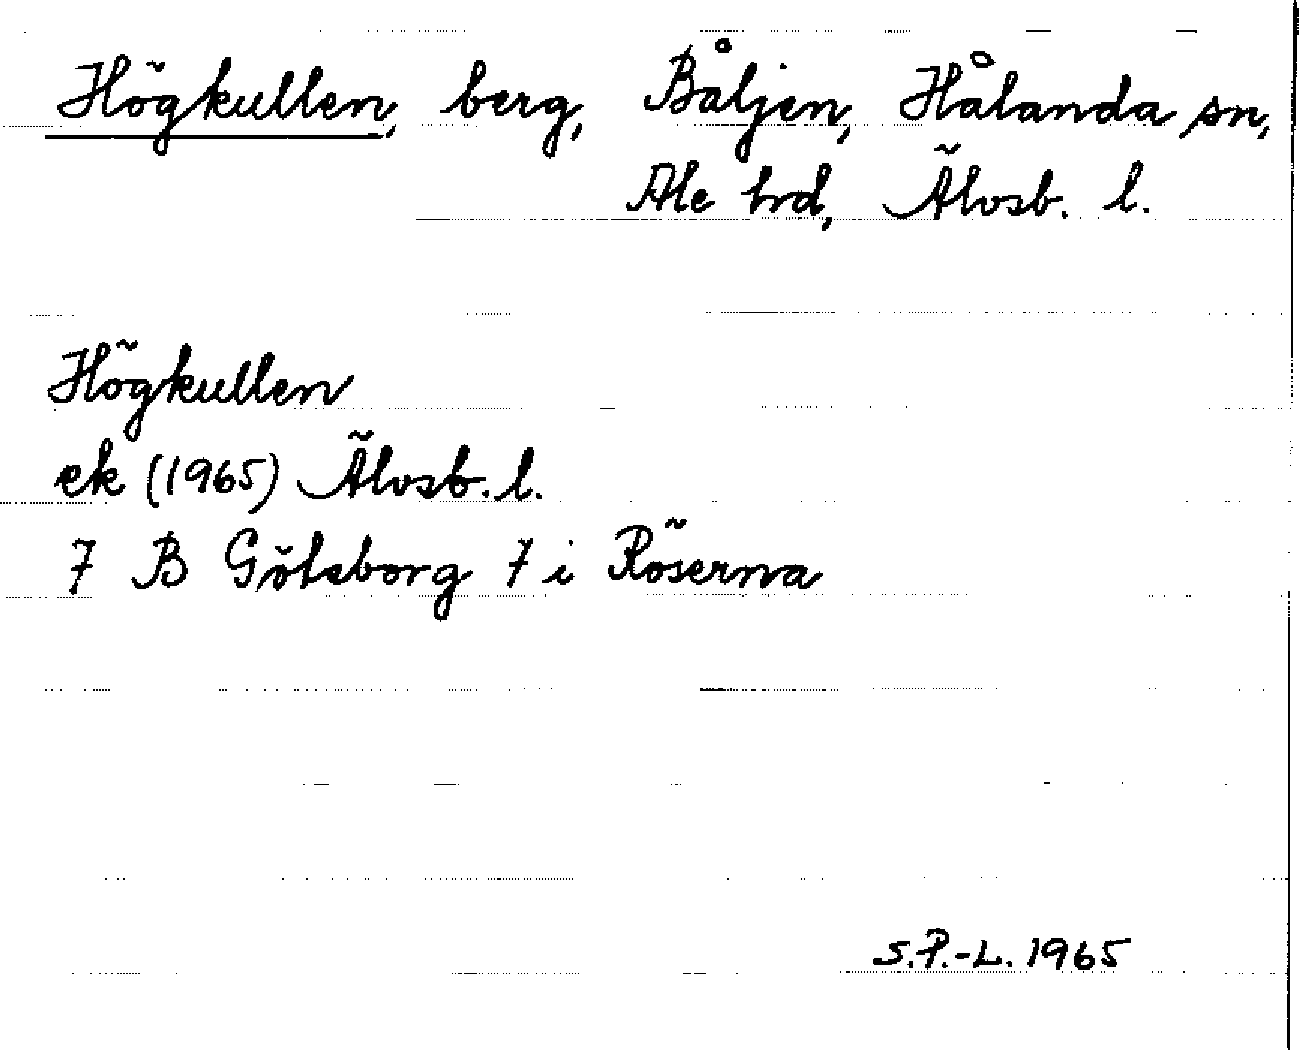 Högkullen, berg, Båljen, Hålanda sn,
Ale hrd, Älvsb. l.
Högkullen
ek (1965) Älvsb. l.
7 B Göteborg 7 i Röserna
S.P.-L. 1965